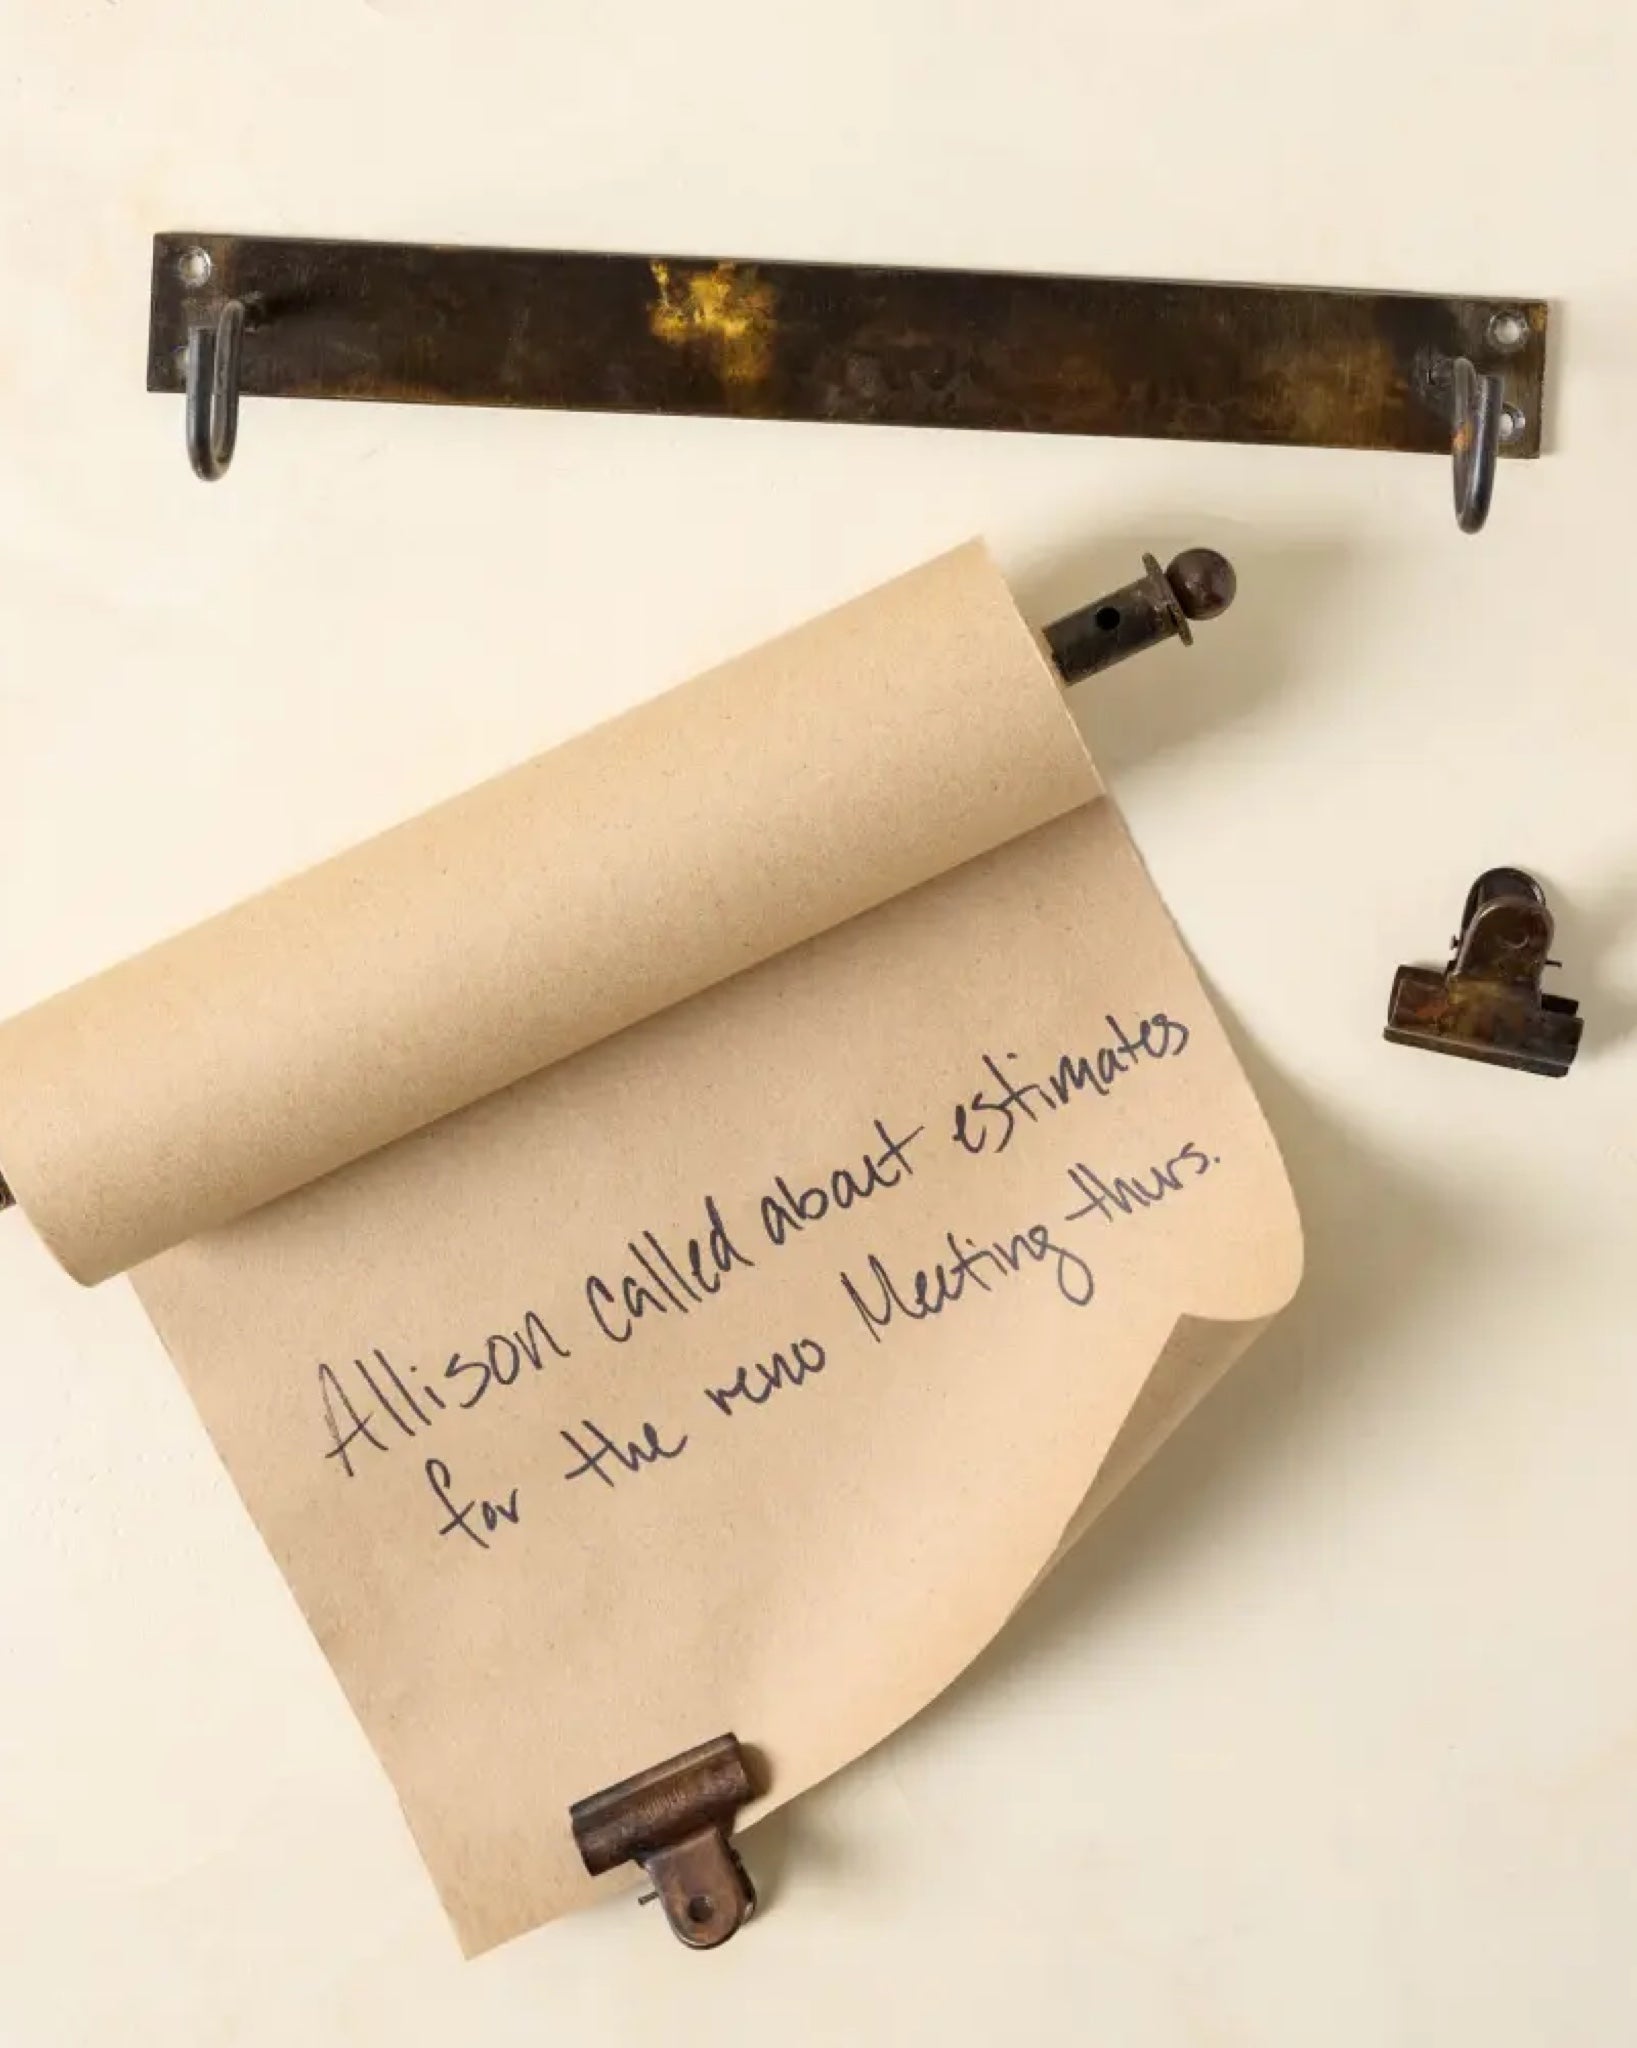 Allison called about estimates
for the reno Meeting thurs.